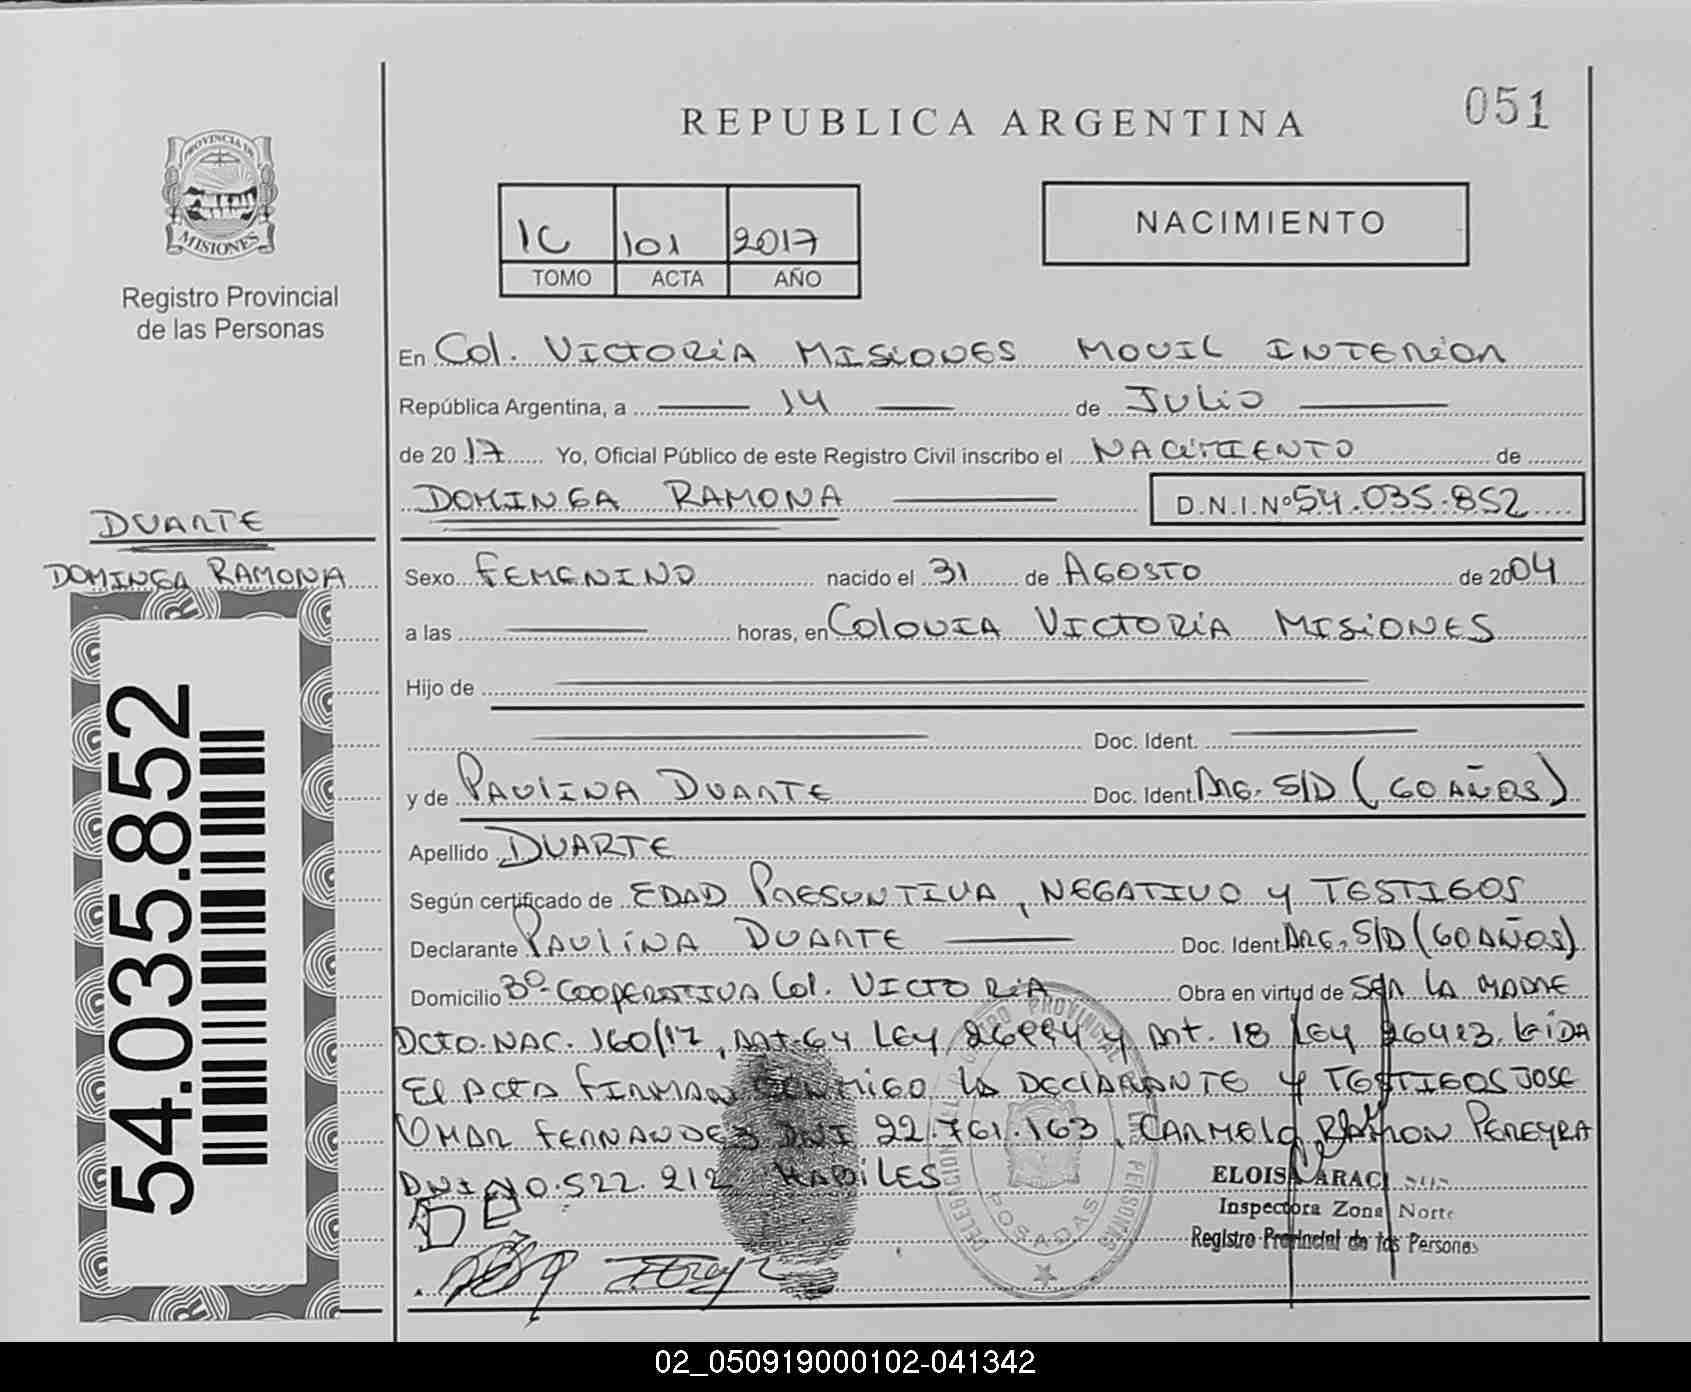 051
REPUBLICA ARGENTINA
PROVINCIA DE
MISIONES
Registro Provincial
de las Personas
1C 101 2017
TOMO ACTA AÑO
NACIMIENTO
En Col. VICTORIA MISIONES MOVIL INTERIOR
República Argentina, a 14 de JULIO
de 2017 Yo, Oficial Público de este Registro Civil inscribo el NACIMIENTO de
DOMINGA RAMONA D.N.I.Nº 54.035.852
DUARTE
DOMINGA RAMONA
54.035.852
Sexo FEMENINO nacido el 31 de AGOSTO de 2004
a las horas, en COLONIA VICTORIA MISIONES
Hijo de
Doc. Ident.
y de PAULINA DUARTE Doc. Ident. ARG. S/D (60 AÑOS)
Apellido DUARTE
Según certificado de EDAD PRESUNTIVA, NEGATIVO Y TESTIGOS
Declarante PAULINA DUARTE Doc. Ident. ARG. S/D (60 AÑOS)
Domicilio Bº COOPERATIVA Col. VICTORIA Obra en virtud de SER LA MADRE
DCTO. NAC. 160/17, ART. 64 LEY 26994 Y ART. 18 LEY 26413. LEIDA
El ACTA FIRMAN CONMIGO LA DECLARANTE Y TESTIGOS JOSE
OMAR FERNANDEZ DNI 22.761.163, CARMELO RAMON PEREYRA
DNI 522.212 HABILES
REGISTRO PROVINCIAL DE LAS PERSONAS
DELEGACION
POSADAS
ELOISA ARACI
Inspectora Zona Norte
Registro Provincial de las Personas
02_050919000102-041342